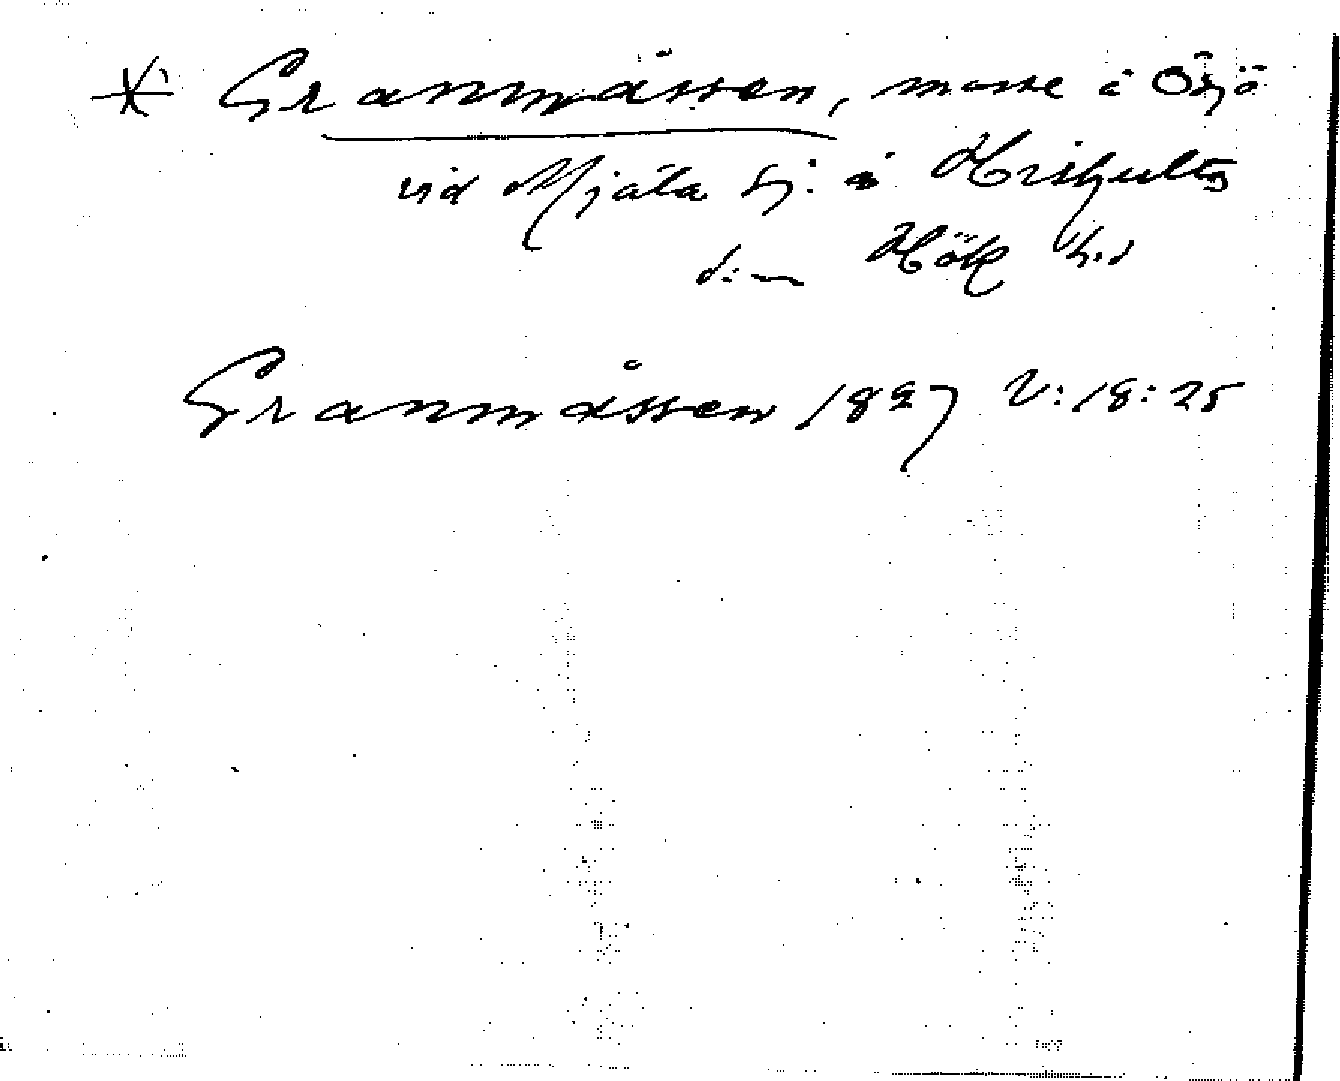 * Granmåssen, mosse i Örjö
vid Mjäla hj. i Hishults
s:n Hök hd
Granmåssen 1827 V:18:25